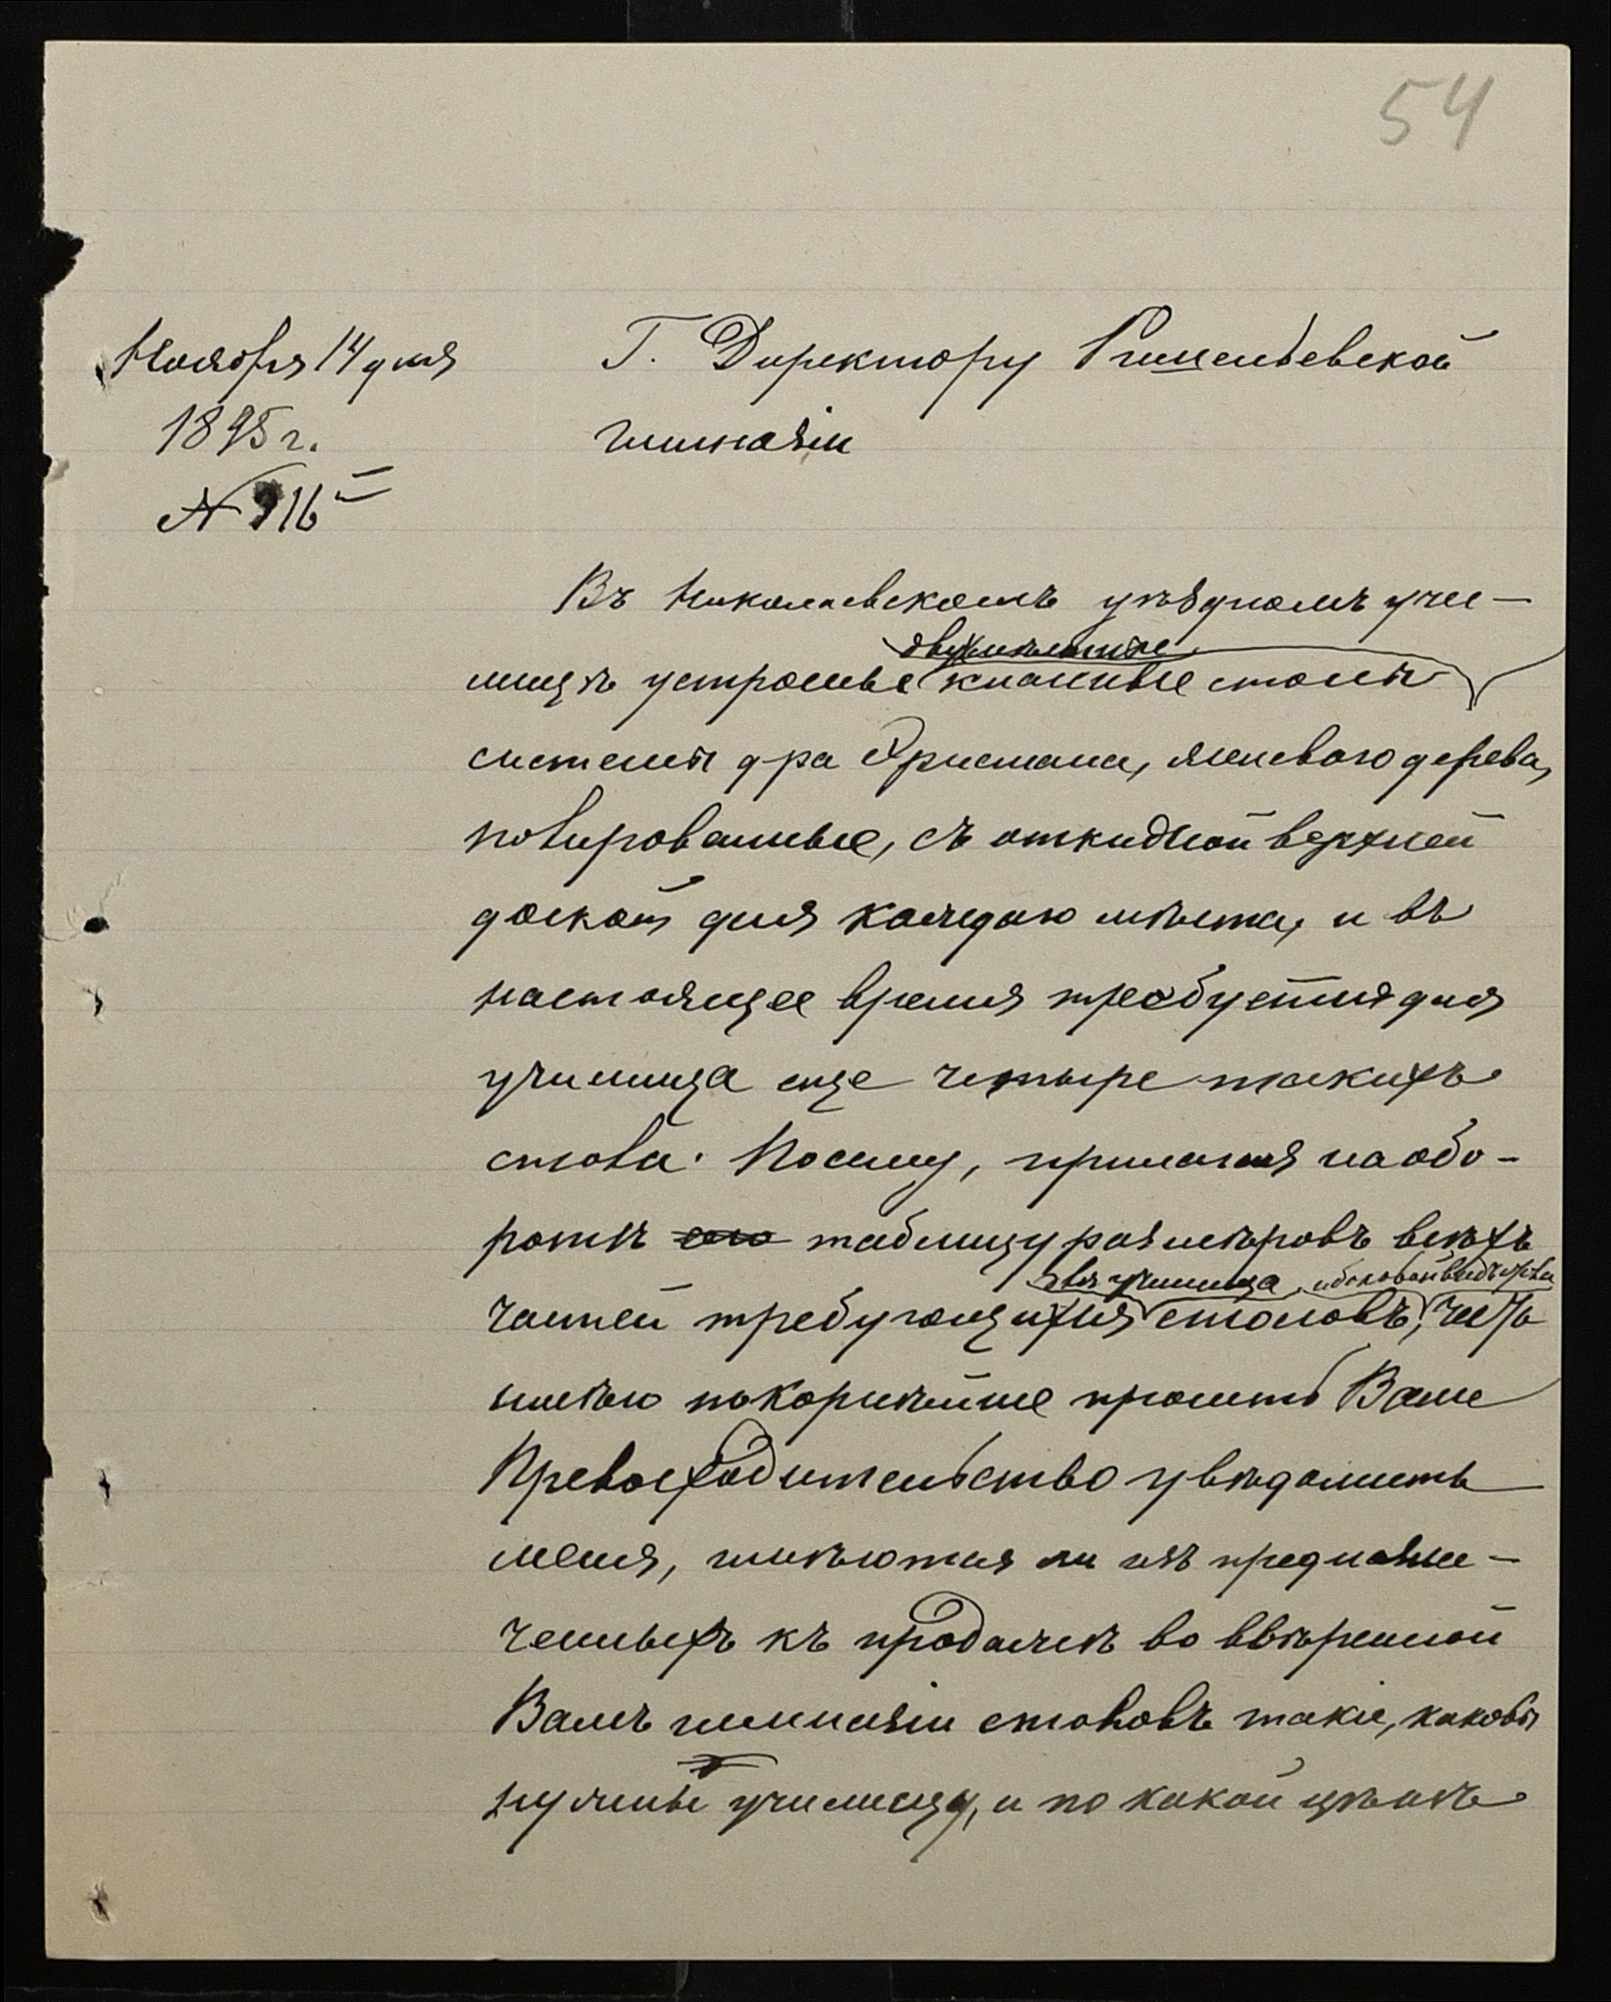 54
Ноября 14 дня
1895 г.
№ 916
Г. Директору Ришельевской
гимназіи
Въ Николаевскомъ уѣздномъ учи-
двухмѣстные
лищѣ устроены классные столы
системы д-ра Эрисмана, ясеневого дерева,
полированные, съ откидной верхней
доской для каждаго мѣста, и въ
настоящее время требуется для
училища еще четыре такихъ
стола. Посему, прилагая на обо-
ротѣ таблицу размѣровъ всѣхъ
для училища, и боковой видъ
частей требующихся столовъ, честь
имѣю покорнѣйше просить Ваше
Превосходительство увѣдомить
меня, имѣются ли изъ предназна-
ченныхъ къ продажѣ во ввѣренной
Вамъ гимназіи столовъ такіе, каковы
нужны училищу, и по какой цѣнѣ